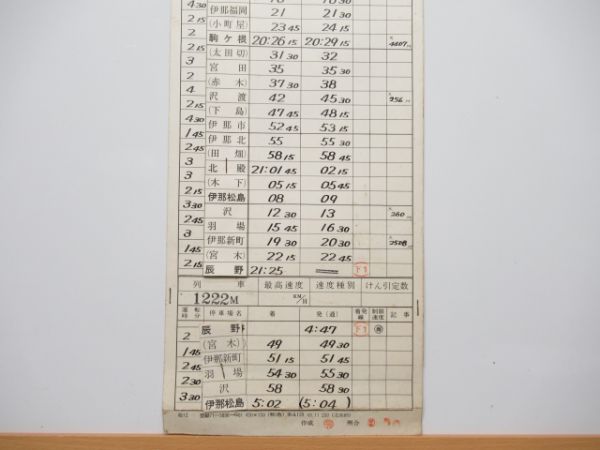 4 30
伊那福岡 21 21 30
2 15
(小町屋) 23 45 24 15
2
駒ヶ根 20:26 15 20:29 15 4407
2 15
(太田切) 31 30 32
3
宮田 35 35 30
2
(赤木) 37 30 38
4
沢渡 42 45 30 256
2 15
(下島) 47 45 48 15
4 30
伊那市 52 45 53 15
1 45
伊那北 55 55 30
2 45
(田畑) 58 15 58 45
3
北殿 21:01 45 02 15
3
(木下) 05 15 05 45
2 15
伊那松島 08 09
3 30
沢 12 30 13 260
2 45
羽場 15 45 16 30
3
伊那新町 19 30 20 30 2508
1 45
(宮木) 22 15 22 45
2 15
辰野 21:25 下1
列車 最高速度 速度種別 けん引定数
1222M KM/H
運転時分 停車場名 着 発(通) 着発線 制限速度 記事
辰野 4:47 下1
2
(宮木) 49 49 30
1 45
伊那新町 51 15 51 45
2 45
羽場 54 30 55 30
2 30
沢 58 58 30
3 30
伊那松島 5:02 (5:04)
作成 照合